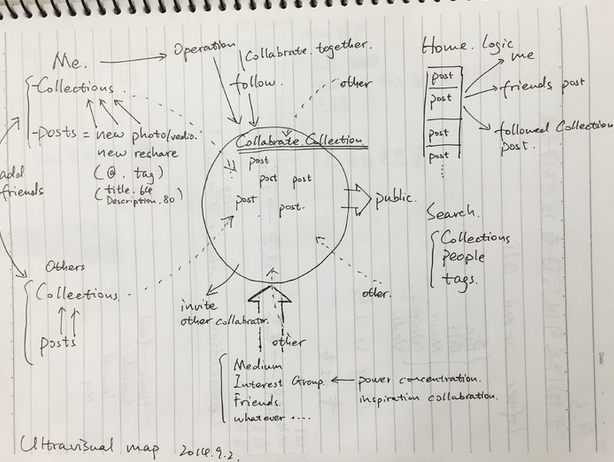 Me.
Operation
Collabrate together.
follow.
other
Collections
posts = new photo/vedio.
new reshare
(@. tag)
(title. 64
Description. 80)
add
friends
Collabrate Collection
post
post
post
post
post.
public.
Others
Collections
posts
invite
other collabrator.
other
other.
Medium
Interest Group. ← power concentration.
Friends. inspiration collabration.
whatever ....
Home. logic
post
post
post
post
me
friends post
followed Collection
post.
Search.
Collections
people
tags.
Ultravisual map 2014.9.2.